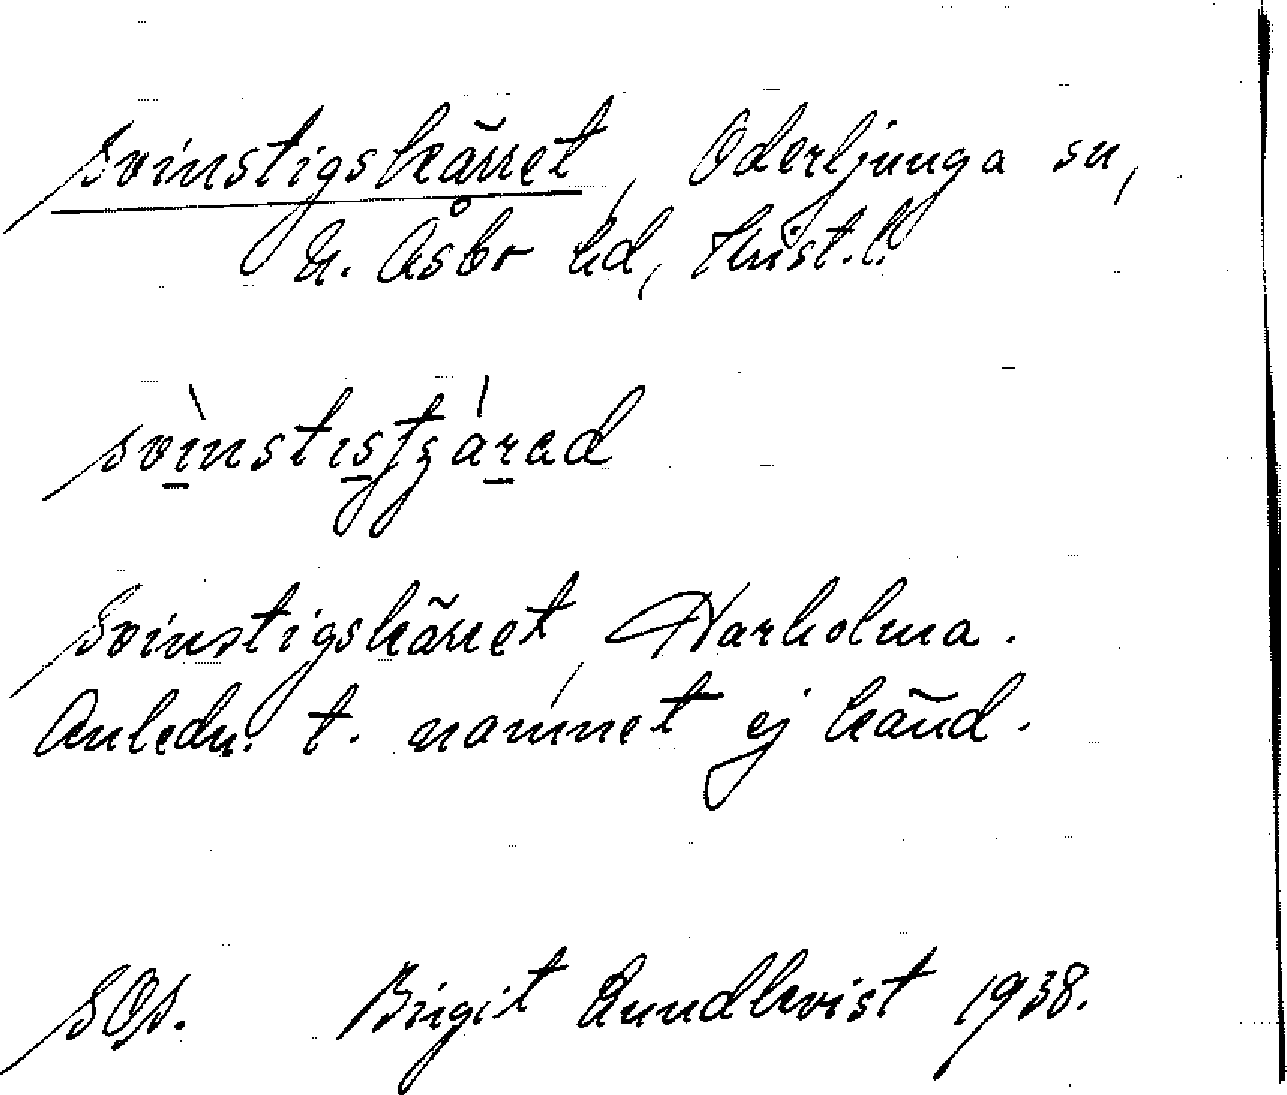 Svinstigskärret, Oderljunga sn,
N. Åsbo hd, Krist. l.
Svinstigskärret, Harholma.
Anledn. t. namnet ej känd.
SOS. Birgit Lundkvist 1938.